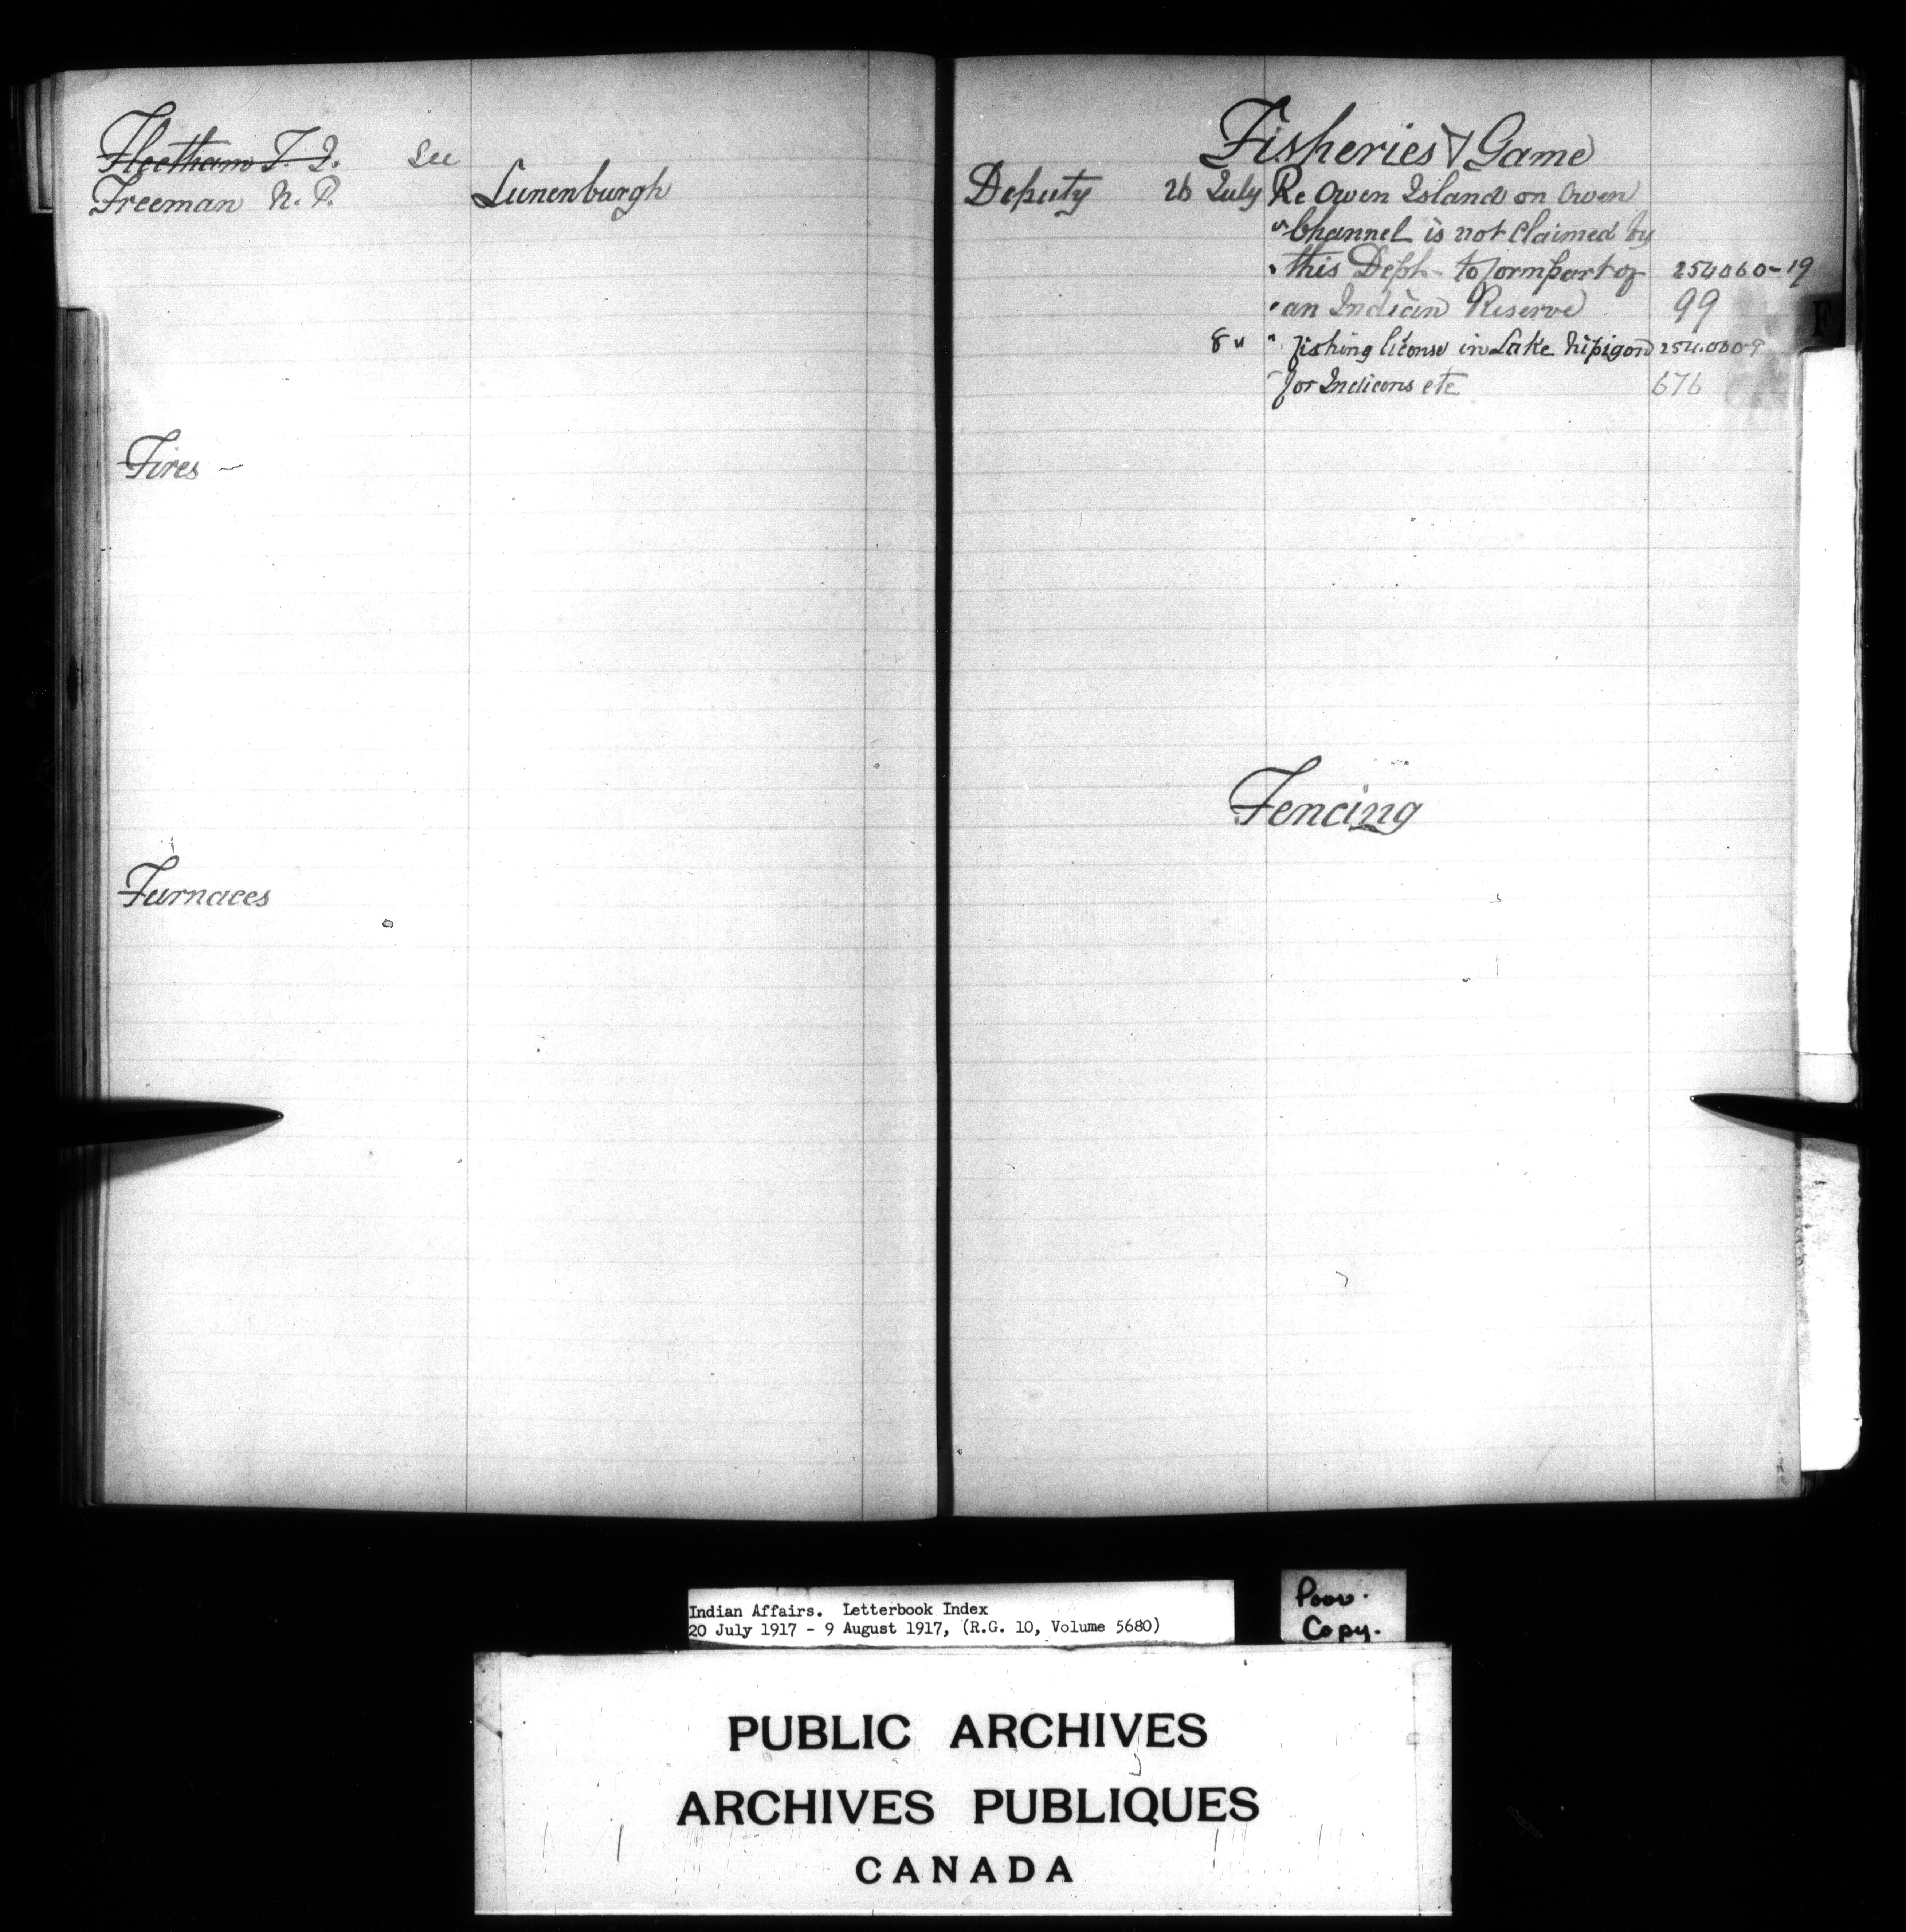 Fleetham T. J. See
Freeman N. P. Lunenburgh
Fires -
Furnaces
Fisheries & Game
Deputy 26 July Re Owen Island on Owen
" Channel is not Claimed by
" this Dept - to form part of 254060-19
" an Indian Reserve 99
8 " " fishing license in Lake Nipigon 254.060-9
" for Indians etc 676
F
Fencing
Indian Affairs. Letterbook Index
20 July 1917 - 9 August 1917, (R.G. 10, Volume 5680)
Poor
Copy.
PUBLIC ARCHIVES
ARCHIVES PUBLIQUES
CANADA